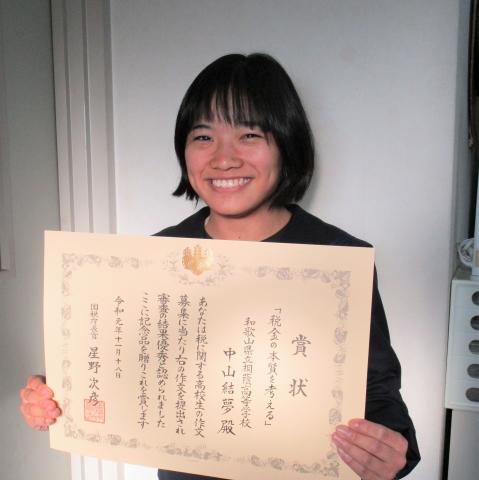 賞状
「税金の本質を考える」
和歌山県立桐蔭高等学校
中山結夢殿
あなたは税に関する高校生の作文
募集に当たり右の作文を提出され
審査の結果優秀と認められました
ここに記念品を贈りこれを賞します
令和元年十一月十八日
国税庁長官 星野次彦